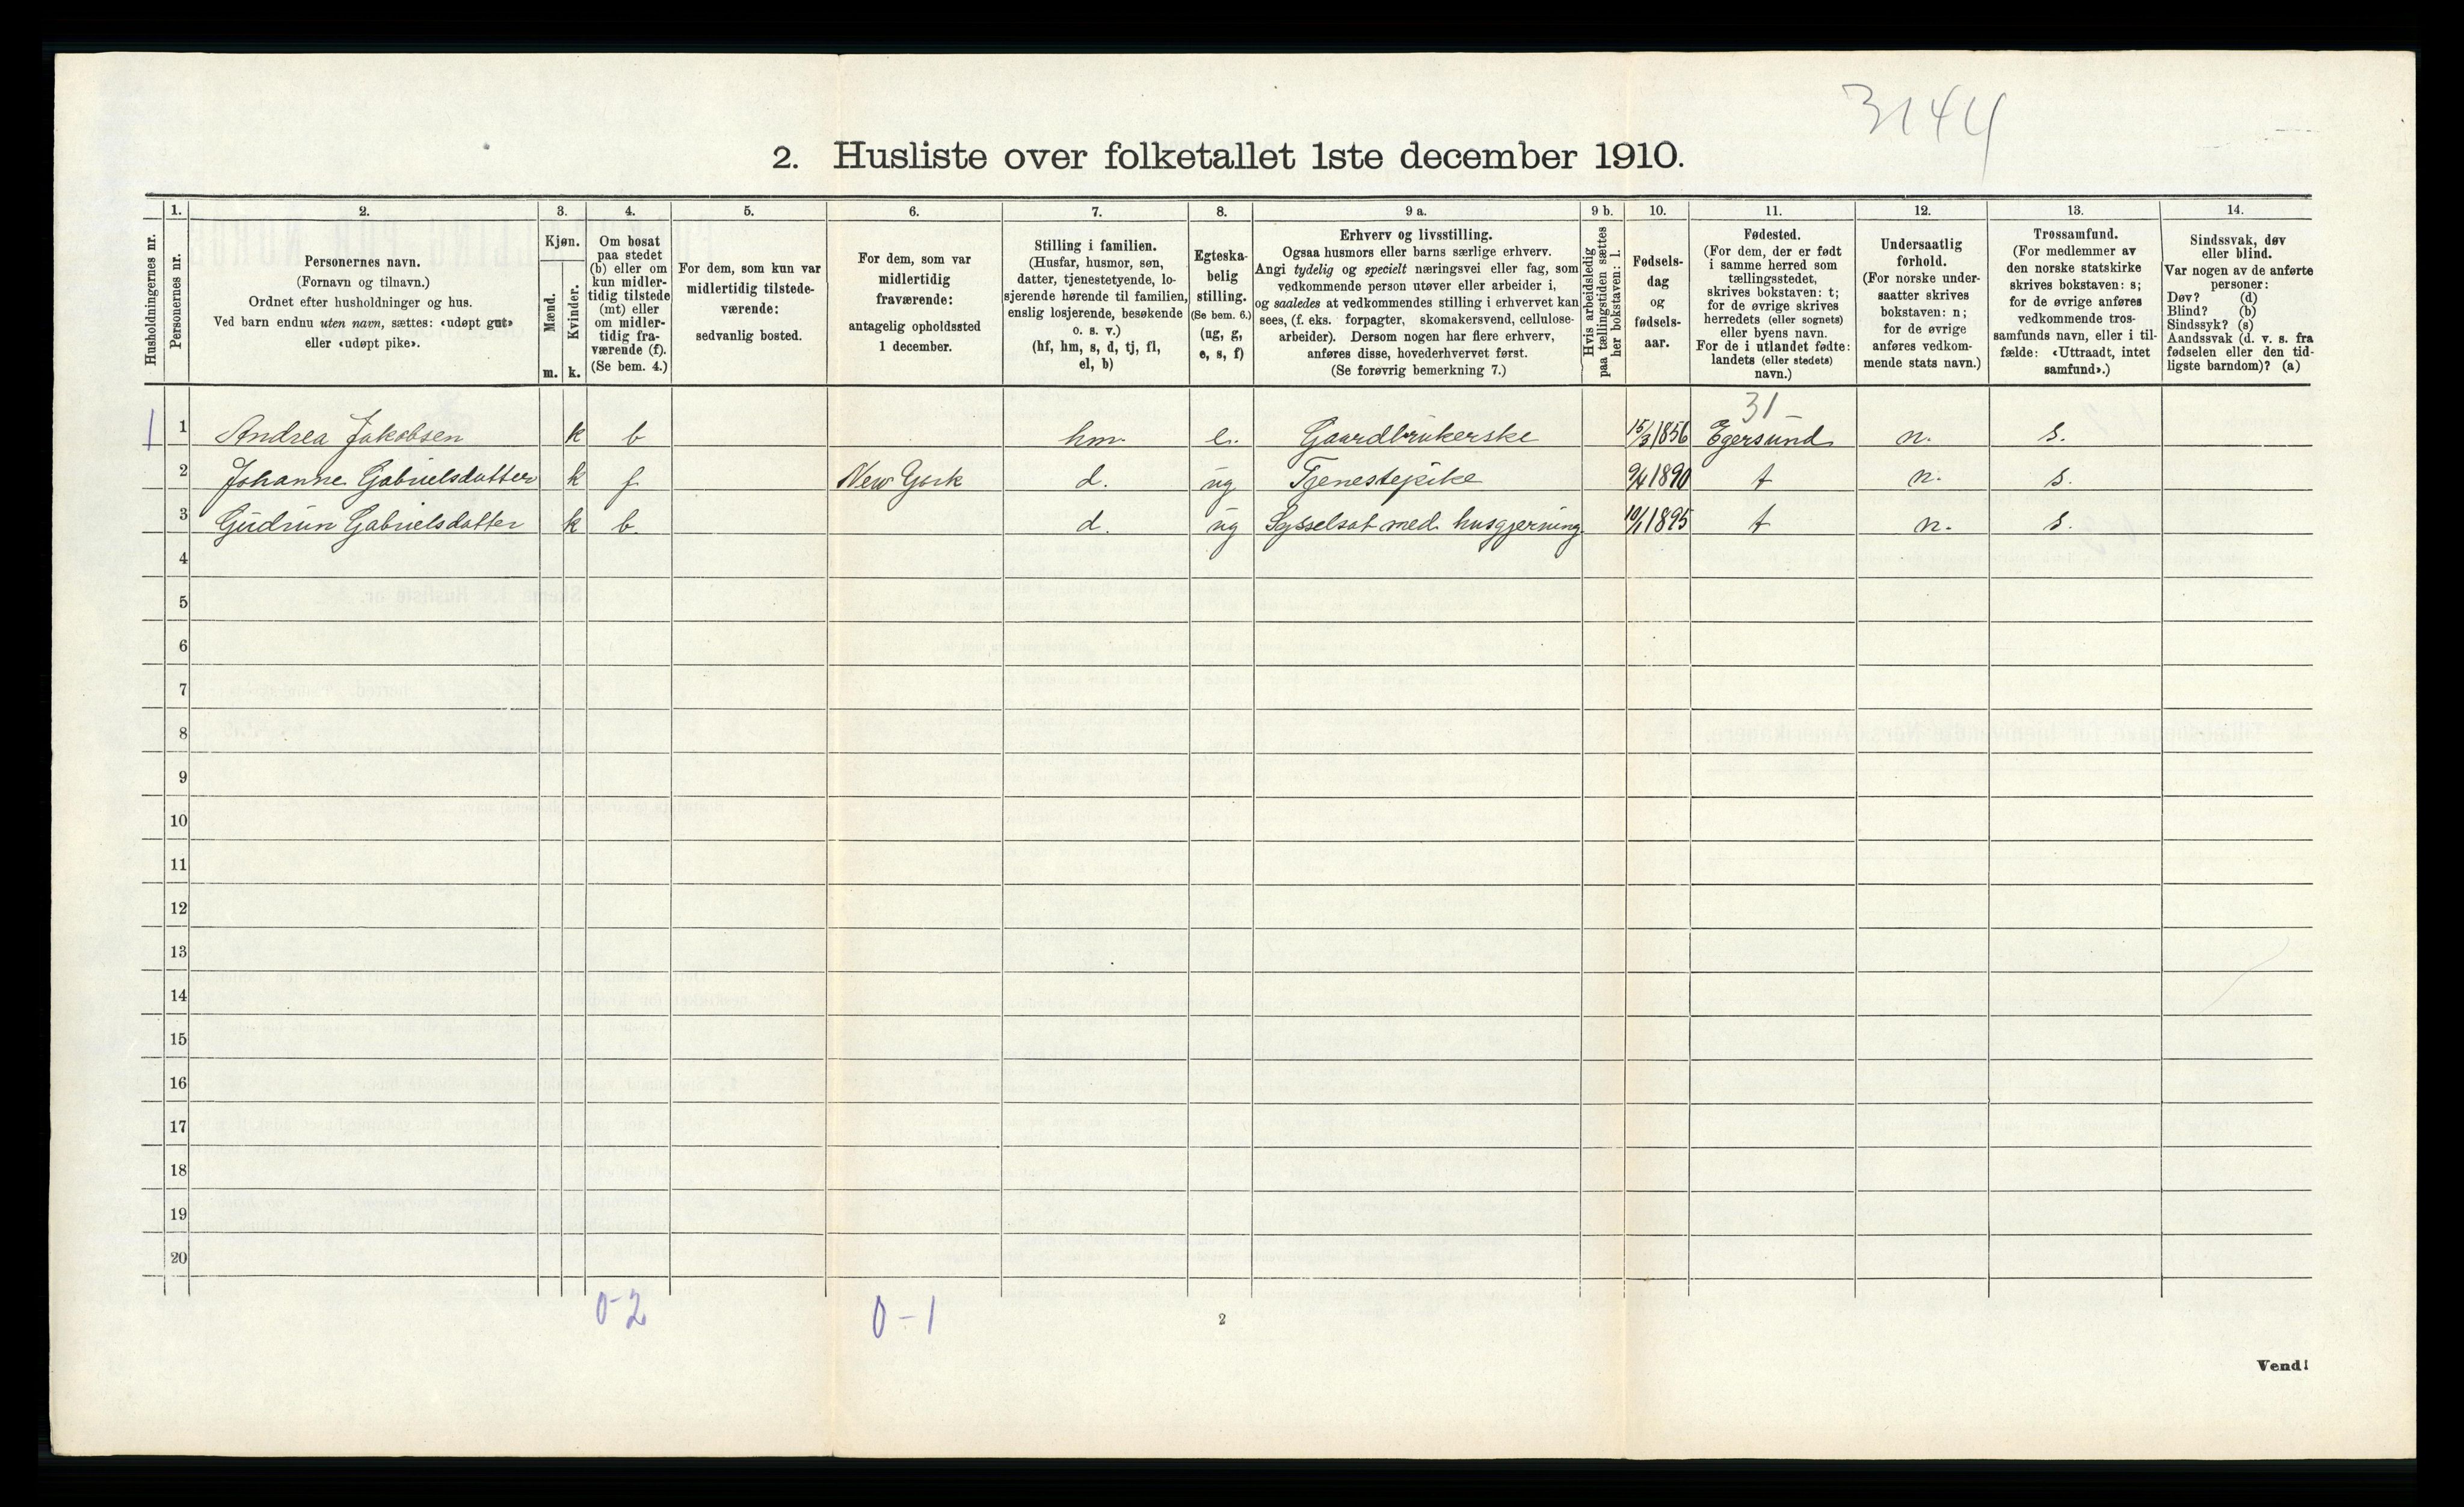 3144
2. Husliste over folketallet 1ste december 1910.
Husholdningernes nr.
1.
Personernes nr.
2.
Personernes navn.
(Fornavn og tilnavn.)
Ordnet efter husholdninger og hus.
Ved barn endnu uten navn, sættes: «udøpt gut»
eller «udøpt pike».
3.
Kjøn.
Mænd.
Kvinder.
m. k.
4.
Om bosat
paa stedet
(b) eller om
kun midler-
tidig tilstede
(mt) eller
om midler-
tidig fra-
værende (f).
(Se bem. 4.)
5.
For dem, som kun var
midlertidig tilstede-
værende:
sedvanlig bosted.
6.
For dem, som var
midlertidig
fraværende:
antagelig opholdssted
1 december.
7.
Stilling i familien.
(Husfar, husmor, søn,
datter, tjenestetyende, lo-
sjerende hørende til familien,
enslig losjerende, besøkende
o. s. v.)
(hf, hm, s, d, tj, fl,
el, b)
8.
Egteska-
belig
stilling.
(Se bem. 6.)
(ug, g,
e, s, f)
9 a.
Erhverv og livsstilling.
Ogsaa husmors eller barns særlige erhverv.
Angi tydelig og specielt næringsvei eller fag, som
vedkommende person utøver eller arbeider i,
og saaledes at vedkommendes stilling i erhvervet kan
sees, (f. eks. forpagter, skomakersvend, cellulose-
arbeider). Dersom nogen har flere erhverv,
anføres disse, hovederhvervet først.
(Se forøvrig bemerkning 7.)
9 b.
Hvis arbeidsledig
paa tællingstiden sættes
her bokstaven: l.
10.
Fødsels-
dag
og
fødsels-
aar.
11.
Fødested.
(For dem, der er født
i samme herred som
tællingsstedet,
skrives bokstaven: t;
for de øvrige skrives
herredets (eller sognets)
eller byens navn.
For de i utlandet fødte:
landets (eller stedets)
navn.)
12.
Undersaatlig
forhold.
(For norske under-
saatter skrives
bokstaven: n;
for de øvrige
anføres vedkom-
mende stats navn.)
13.
Trossamfund.
(For medlemmer av
den norske statskirke
skrives bokstaven: s;
for de øvrige anføres
vedkommende tros-
samfunds navn, eller i til-
fælde: «Uttraadt, intet
samfund».)
14.
Sindssvak, døv
eller blind.
Var nogen av de anførte
personer:
Døv? (d)
Blind? (b)
Sindssyk? (s)
Aandssvak (d. v. s. fra
fødselen eller den tid-
ligste barndom)? (a)
31
1 1 Andrea Jakobsen k b hm. e. Gaardbrukerske 15/3 1856 Egersund n. s.
2 Johanne Gabrielsdatter k f New York d. ug Tjenestepike 9/4 1890 t n. s.
3 Gudrun Gabrielsdatter k b d. ug Sysselsat med husgjerning 10/1 1895 t n. s.
4
5
6
7
8
9
10
11
12
13
14
15
16
17
18
19
20
0-2
0-1
2
Vend!